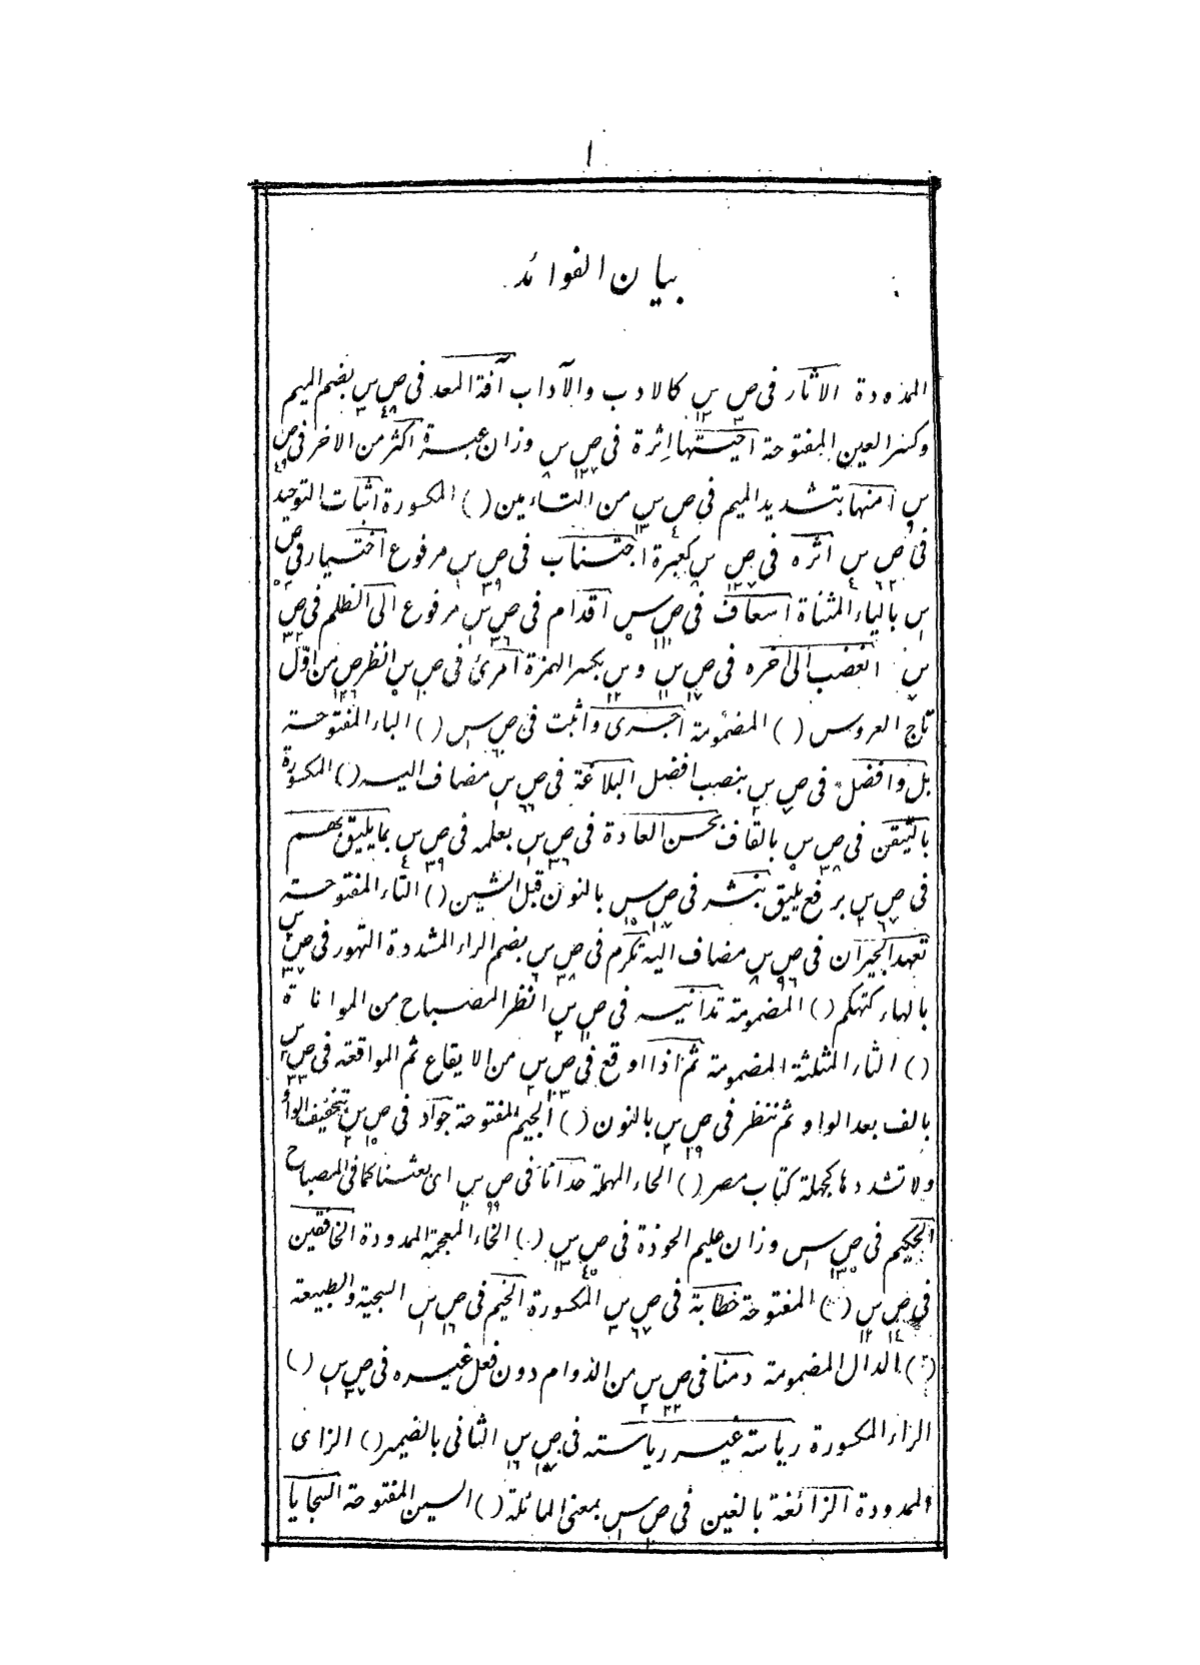 ١
بيان الفوائد
الممدودة الاثار فى ص ٣ س ١٢ كالادب والآداب آفة المعد فى ص ٤٨ س ٣ بضم الميم
وكسر العين المفتوحة احيتها اثرة فى ص ١٢٧ س ٨ وزان عبرة اكثر من الاخر فى ص ٤٩
س ٩ امنها بتشديد الميم فى ص ٤ س ١٣ من التاءمين () المكسورة اثبات التوحيد
فى ص ٦٢ س ٤ اثره فى ص ١٢٧ س ٨ كعبرة اجتناب فى ص ٣٩ س ١ مرفوع اختيار فى ص ٥٢
س ١ بالياء المثناة اسعاف فى ص ١١١ س ٥ اقدام فى ص ٣٦ س ١ مرفوع الى الظلم فى ص ٣٢
س ٧ الغضب الى اخره فى ص ١٧ س ١١ و س ١٢ بكسر الهمزة امرئ فى ص ١٠ س ٥ انظر ص ١٢٦ من اوّل
تاج العروس () المضمومة اجرى واثبت فى ص ٦٠ س () الباء المفتوحة
بل وافضل فى ص ٧ س ٢ بنصب افضل البلاغة فى ص ٦٦ س ١ مضاف اليه () المكسورة
بالتيقن فى ص ٣٨ س ٥ بالقاف بحسن العادة فى ص ٣٦ س ١ بعلمه فى ص ٣٩ س ٤ بما يليق بهم
فى ص ٦٧ س ٢ برفع يليق بنشر فى ص ١٧ س ١٥ بالنون قبل الشين () التاء المفتوحة
تعهد الجيران فى ص ٩٦ س ٨ مضاف اليه تكرم فى ص ٣٨ س ٦ بضم الراء المشددة التهور فى ص ٣٧ س
بالهاء كتهكم () المضمومة تدانيه فى ص ١١ س ٢ انظر المصباح من الموا ناة
() الثاء المثلثة المضمومة ثم اذا اوقع فى ص س ٢ من الايقاع ثم المواقعة فى ص ٣٣ س ٢
بالف بعد الواو ثم ننظر فى ص ٢٩ س ٢ بالنون () الجيم المفتوحة جواد فى ص ١٥ س ٢ بتخفيف الواو
ولا تشددها كجهلة كتاب مصر () الحاء المهملة حدانا فى ص ٩٩ س اى بعثنا كما فى المصباح
الحكيم فى ص ١٣٥ س ١ وزان عليم الحوذة فى ص ٤٥ س ١٣ () الخاء المعجمة الممدودة الخافقين
فى ص ١٤ س ١٢ () المفتوحة خطابة فى ص ٦٧ س ٣ المكسورة الخيم فى ص ١٦ س ١ السجية والطبيعة
() الدال المضمومة دمنا فى ص ٢٢ س ٢ من الدوام دون فعل غيره فى ص س ()
الراء المكسورة رياسة غير رياسته فى ص ١٥ س ١٦ الثانى بالضمير () الزاى
الممدودة الزائغة بالغين فى ص ١ س ١ بمعنى المائلة () السين المفتوحة السجايا